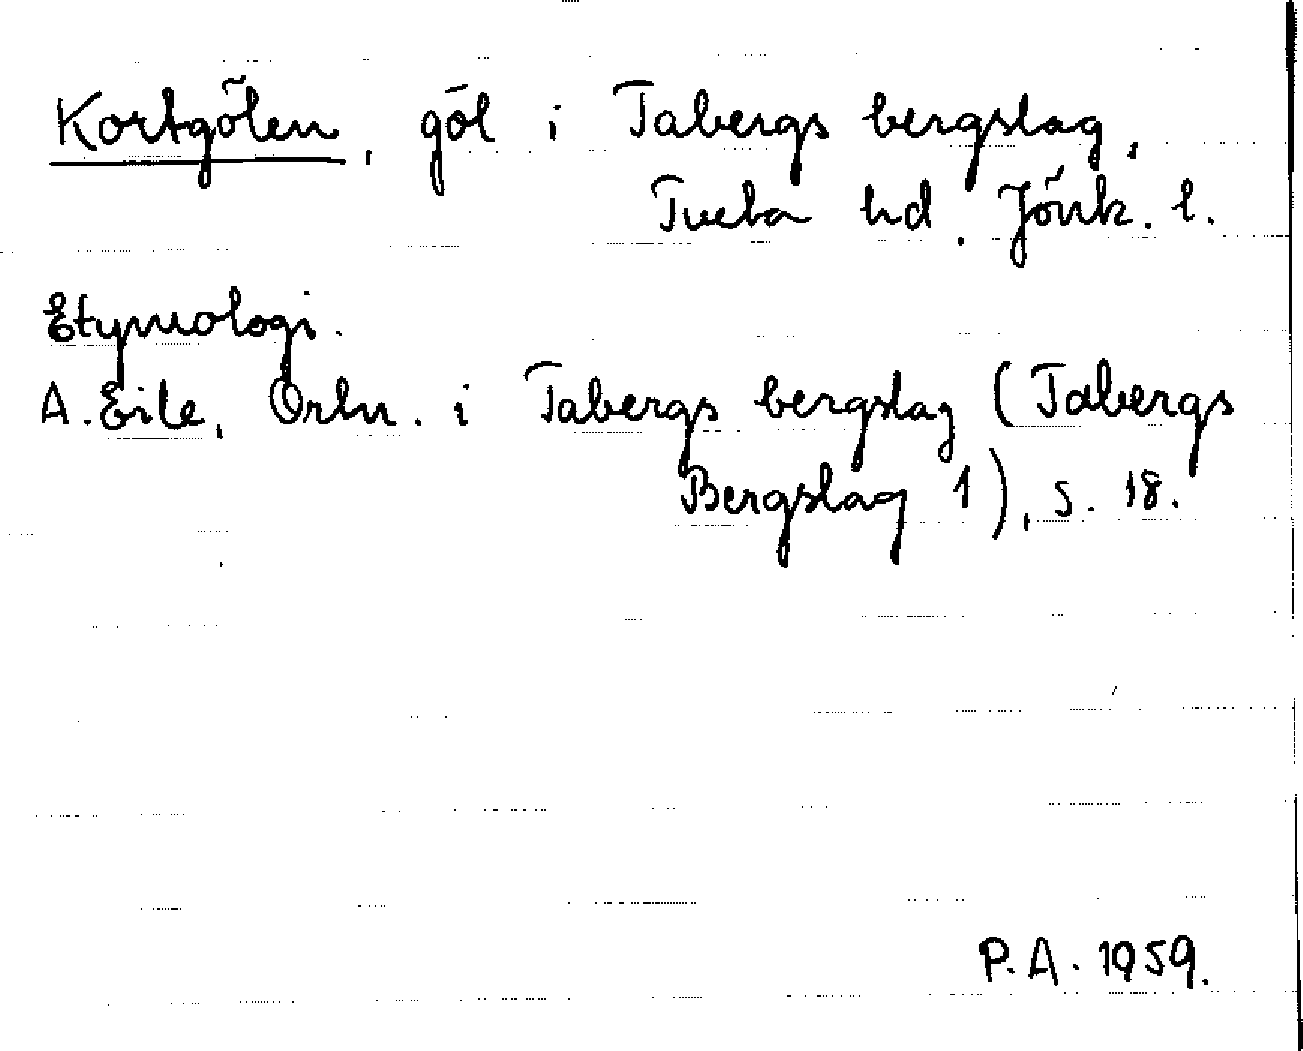 Kortgölen, göl i Tabergs bergslag,
Tveta hd. Jönk. l.
Etymologi.
A. Eile, Ortn. i Tabergs bergslag (Tabergs
Bergslag 1), s. 18.
P. A. 1959.